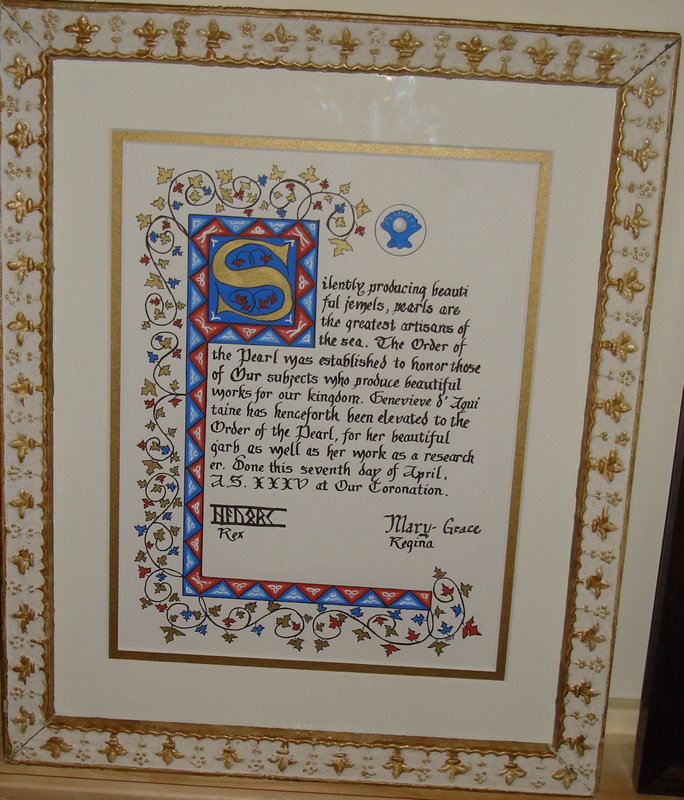 Silently producing beauti
ful jewels, pearls are
the greatest artisans of
the sea. The Order of
the Pearl was established to honor those
of Our subjects who produce beautiful
works for our kingdom. Genevieve d' Aqui
taine has henceforth been elevated to the
Order of the Pearl, for her beautiful
garb as well as her work as a research
er. Done this seventh day of April,
A.S. XXXV at Our Coronation.
Mary-Grace
Rex
Regina